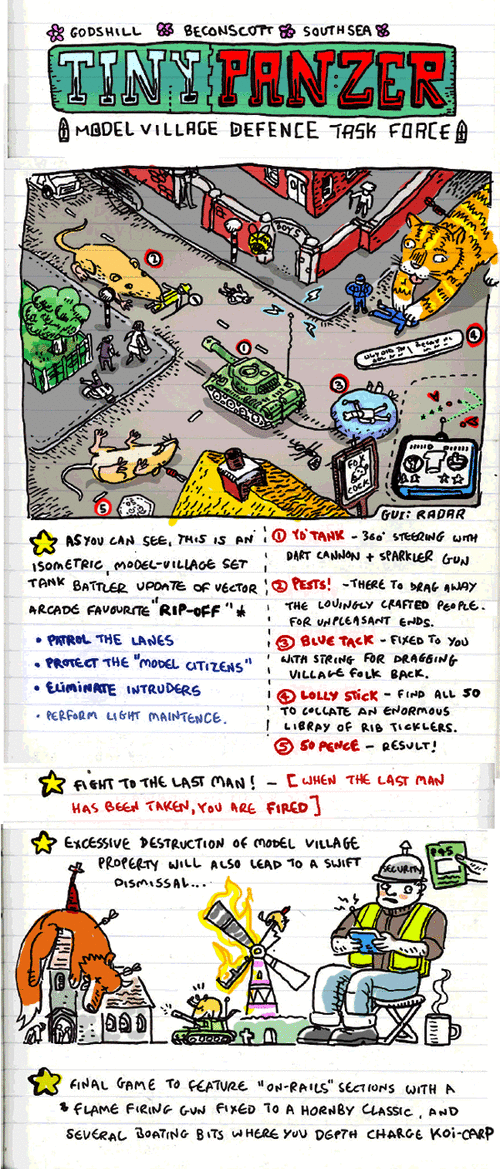 GODSHILL BECONSCOTT SOUTHSEA
TINY PANZER
MODEL VILLAGE DEFENCE TASK FORCE
BOYS
2
1
3
4
5
FOX
COCK
GUI: RADAR
AS YOU CAN SEE, THIS IS AN
ISOMETRIC, MODEL-VILLAGE SET
TANK BATTLER UPDATE OF VECTOR
ARCADE FAVOURITE "RIP-OFF" *
• PATROL THE LANES
• PROTECT THE "MODEL CITIZENS"
• ELIMINATE INTRUDERS
• PERFORM LIGHT MAINTENCE.
1 YO' TANK - 360° STEERING WITH
DART CANNON + SPARKLER GUN
2 PESTS! - THERE TO DRAG AWAY
THE LOVINGLY CRAFTED PEOPLE.
FOR UNPLEASANT ENDS.
3 BLUE TACK - FIXED TO YOU
WITH STRING FOR DRAGGING
VILLAGE FOLK BACK.
4 LOLLY STICK - FIND ALL 50
TO COLLATE AN ENORMOUS
LIBRAY OF RIB TICKLERS.
5 50 PENCE - RESULT!
FIGHT TO THE LAST MAN! - [WHEN THE LAST MAN
HAS BEEN TAKEN, YOU ARE FIRED]
EXCESSIVE DESTRUCTION OF MODEL VILLAGE
PROPERTY WILL ALSO LEAD TO A SWIFT
DISMISSAL...
SECURITY
P45
FINAL GAME TO FEATURE "ON-RAILS" SECTIONS WITH A
FLAME FIRING GUN FIXED TO A HORNBY CLASSIC, AND
SEVERAL BOATING BITS WHERE YOU DEPTH CHARGE KOI-CARP